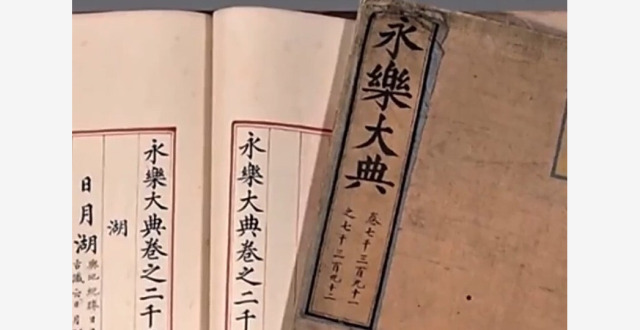 永樂大典
卷七千三百九十一
之七千三百九十二
永樂大典卷之二千
永樂大典卷之二千
湖
日月湖
輿地紀勝日